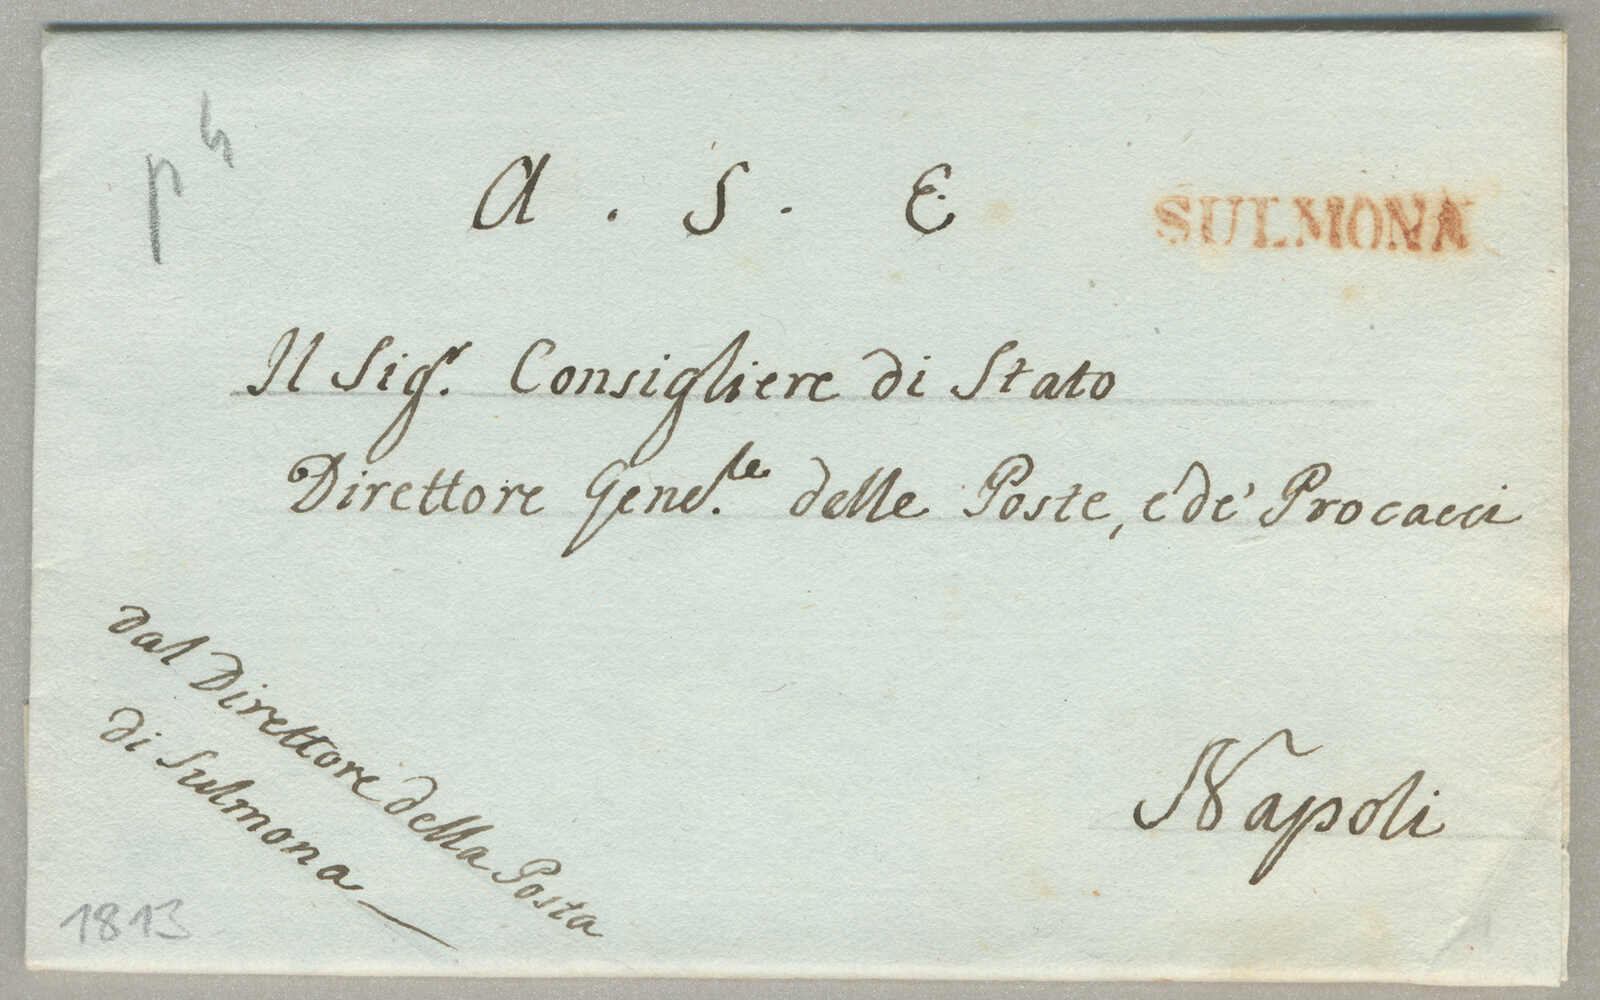 p 4
A . S . E
SULMONA
Il Sig.r Consigliere di Stato
Direttore Gene.le delle Poste, e de' Procacci
dal Direttore della Posta
di Sulmona
Napoli
1813